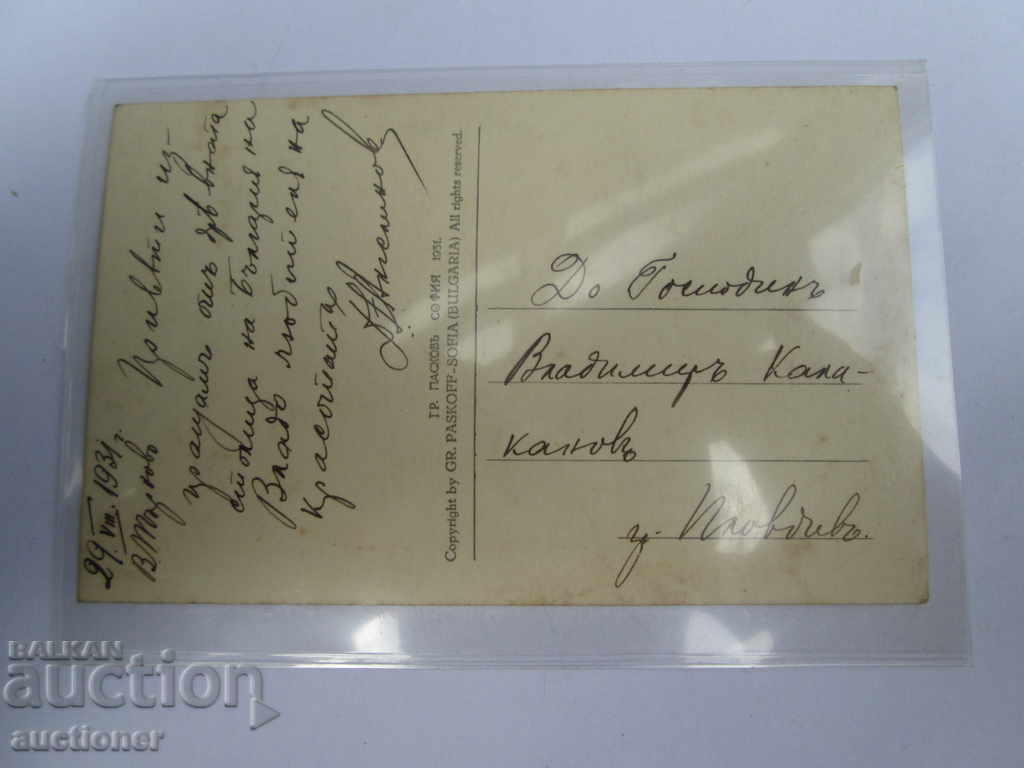 29.VIII.1931 г.
В. Търново
Приветъ из-
пращамъ отъ древната
столица на България на
Владо любителя на
красотата
ГР. ПАСКОВЪ СОФИЯ 1931.
Copyright by GR. PASKOFF-SOFIA (BULGARIA) All rights reserved.
До Господинъ
Владимиръ Капа-
кановъ
гр. Пловдивъ.
BALKAN
auction
auctioner